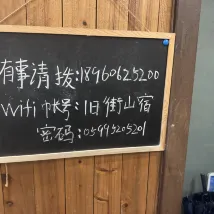 有事请拨:18960625200
Wifi帐号:旧街山宿
密码:05995205201